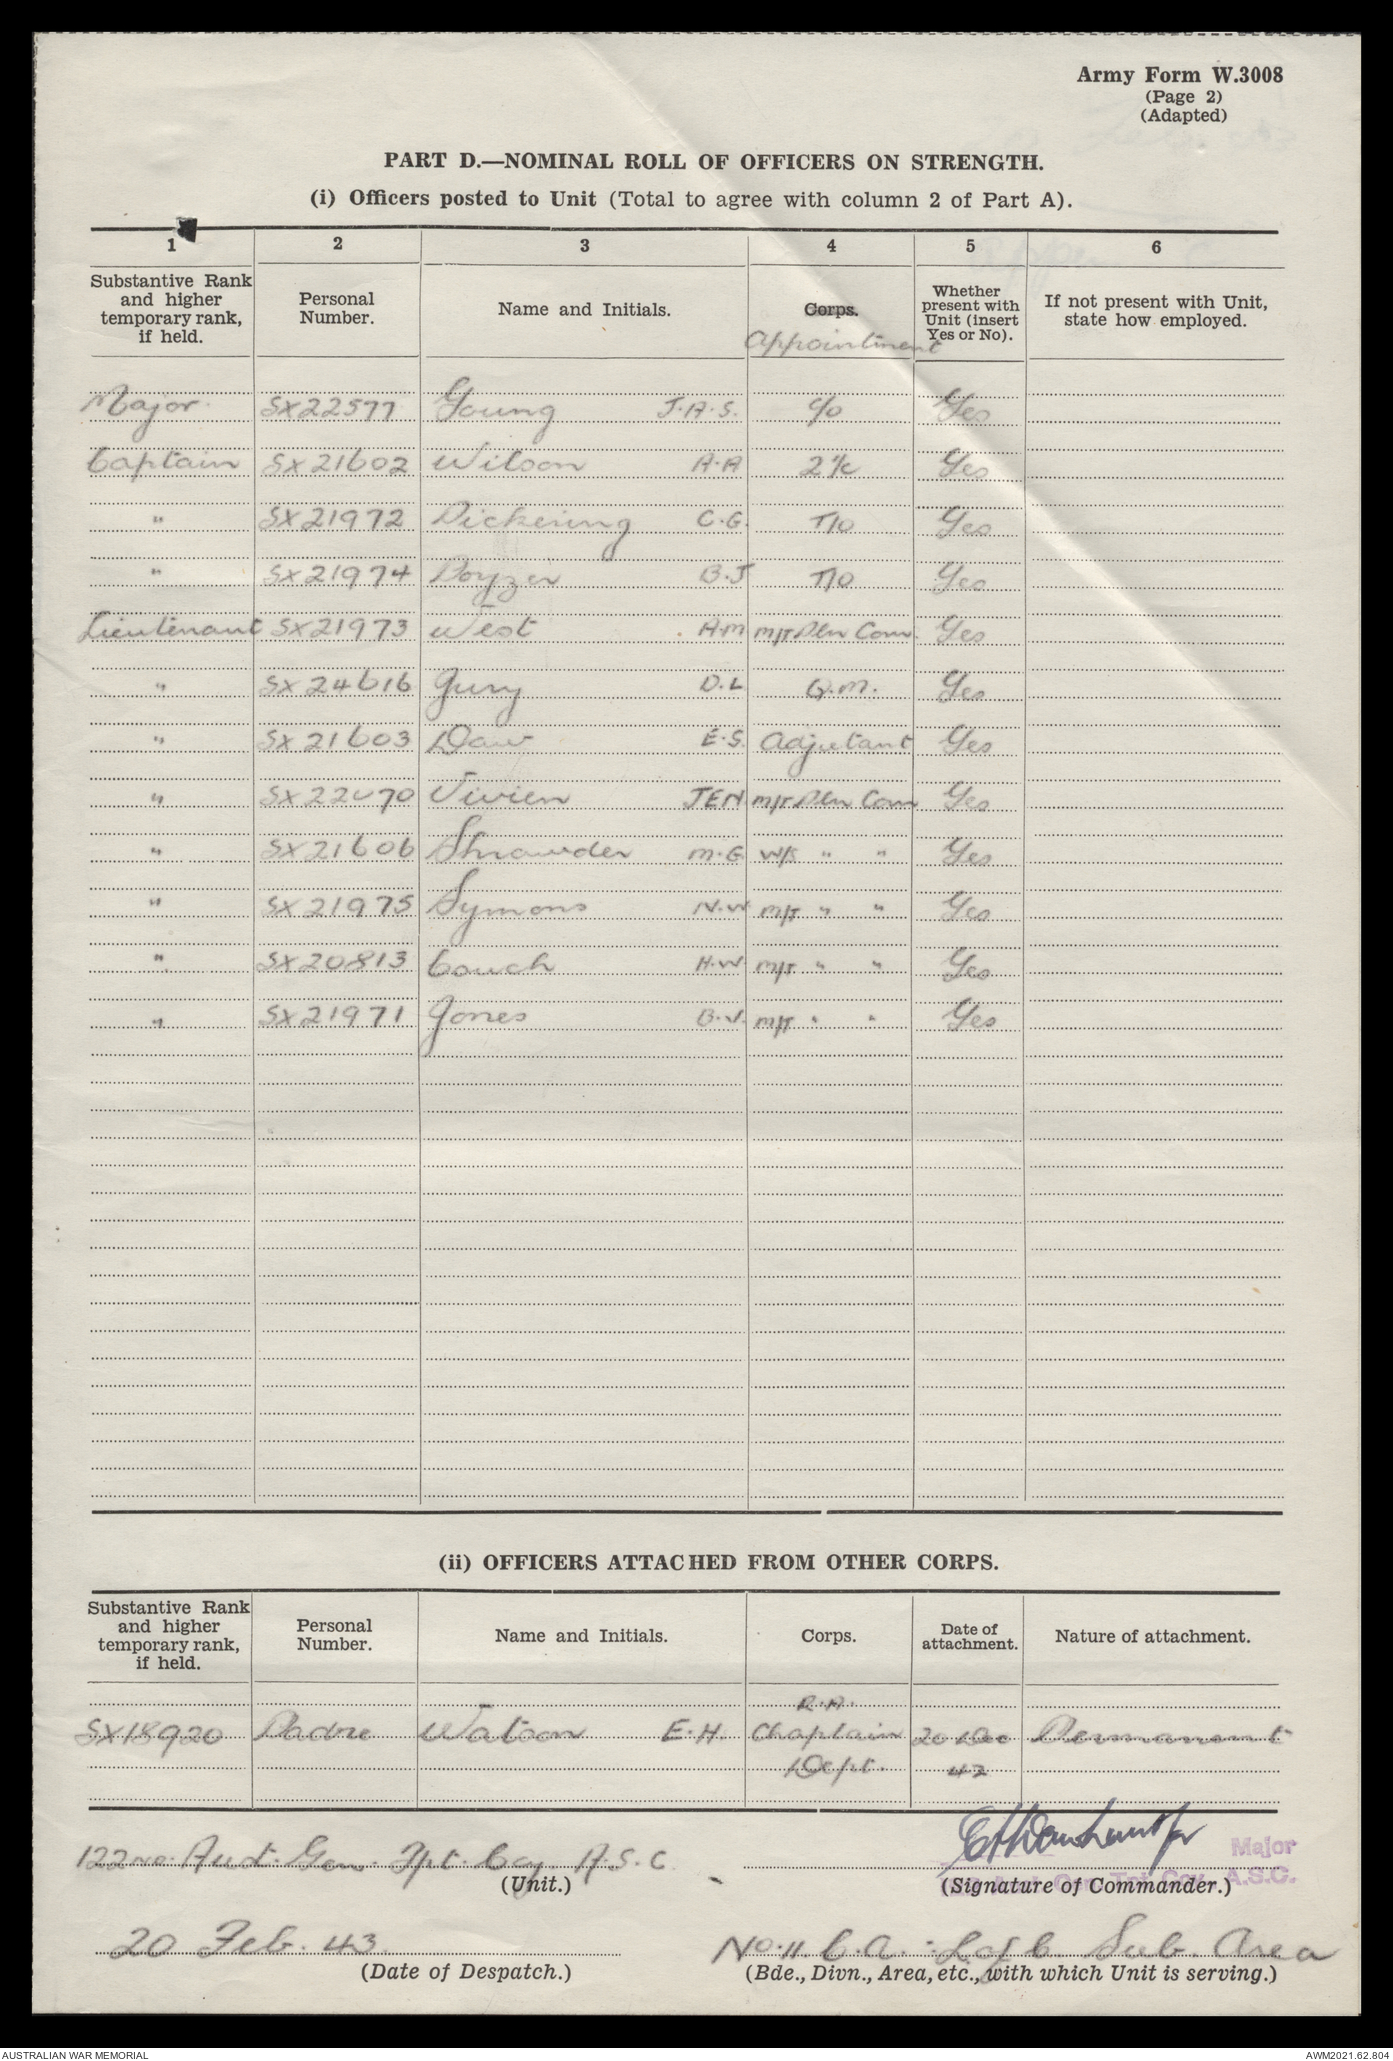 Army Form W.3008
(Page 2)
(Adapted)
PART D.—NOMINAL ROLL OF OFFICERS ON STRENGTH.
(i) Officers posted to Unit (Total to agree with column 2 of Part A).
1 2 3 4 5 6
Substantive Rank and higher temporary rank, if held. Personal Number. Name and Initials. Corps. Appointment Whether present with Unit (insert Yes or No). If not present with Unit, state how employed.
Major SX22577 Young J.A.S. C/O Yes
Captain SX21602 Wilson A.A 2 I/c Yes
" SX21972 Pickering C.G. T/O Yes
" SX21974 Poyzer B.J T/O Yes
Lieutenant SX21973 West A.M M/T Pln Com. Yes
" SX24616 Gury D.L Q.M. Yes
" SX21603 Daw E.S. Adjutant Yes
" SX22070 Vivien JEN M/T Pln Com Yes
" SX21606 Shrowder M.G. W/S " " Yes
" SX21975 Symons N.W M/T " " Yes
" SX20813 Couch H.W M/T " " Yes
" SX21971 Jones B.V. M/T " " Yes
(ii) OFFICERS ATTACHED FROM OTHER CORPS.
Substantive Rank and higher temporary rank, if held. Personal Number. Name and Initials. Corps. Date of attachment. Nature of attachment.
R.A.
SX18920 Padre Watson E.H. Chaplain 20 Dec Permanent
Dept. 42
122 Aust. Gen. Tpt. Coy. A.S.C
Major
A.S.C.
(Unit.) (Signature of Commander.)
20 Feb. 43. No.11 C.A. L of C. Sub. Area
(Date of Despatch.) (Bde., Divn., Area, etc., with which Unit is serving.)
AUSTRALIAN WAR MEMORIAL AWM2021.62.804